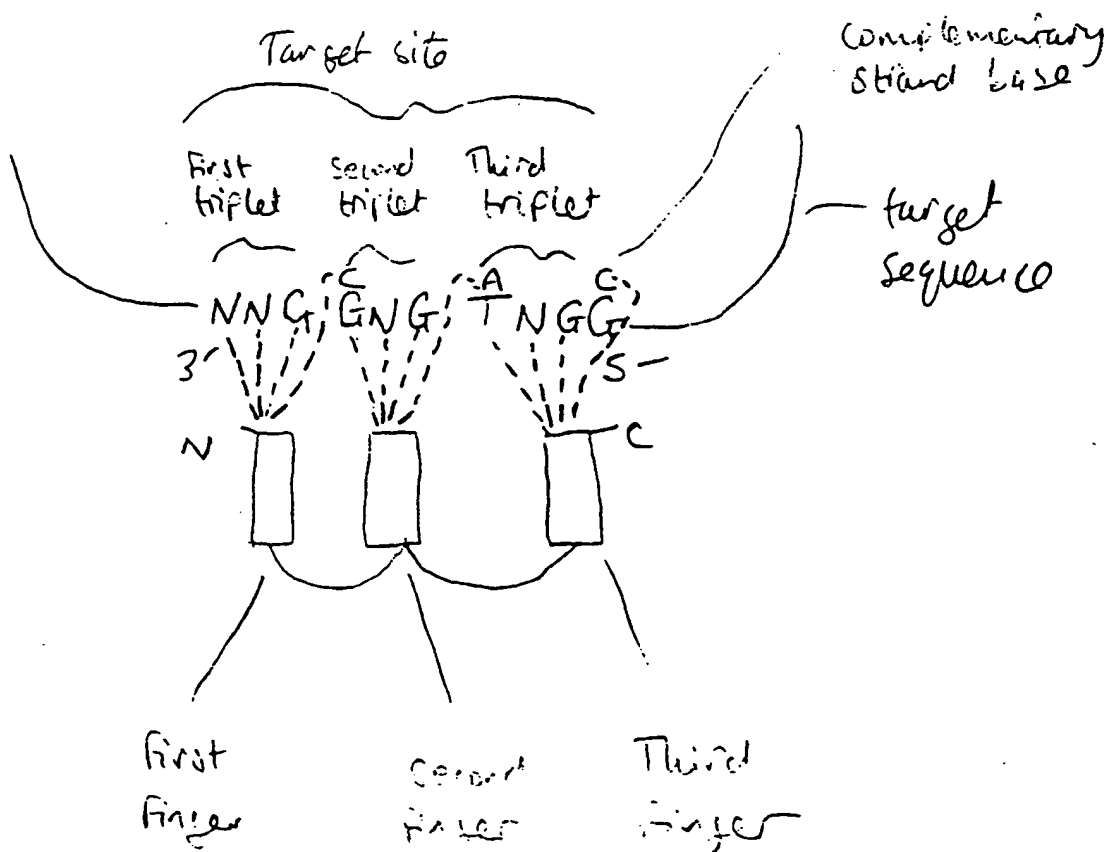 Target site
complementary
strand base
First
triplet
second
triplet
Third
triplet
target
sequence
C A C
N N G G N G T N G G
3' 5
N C
First
Finger
second
finger
Third
Finger